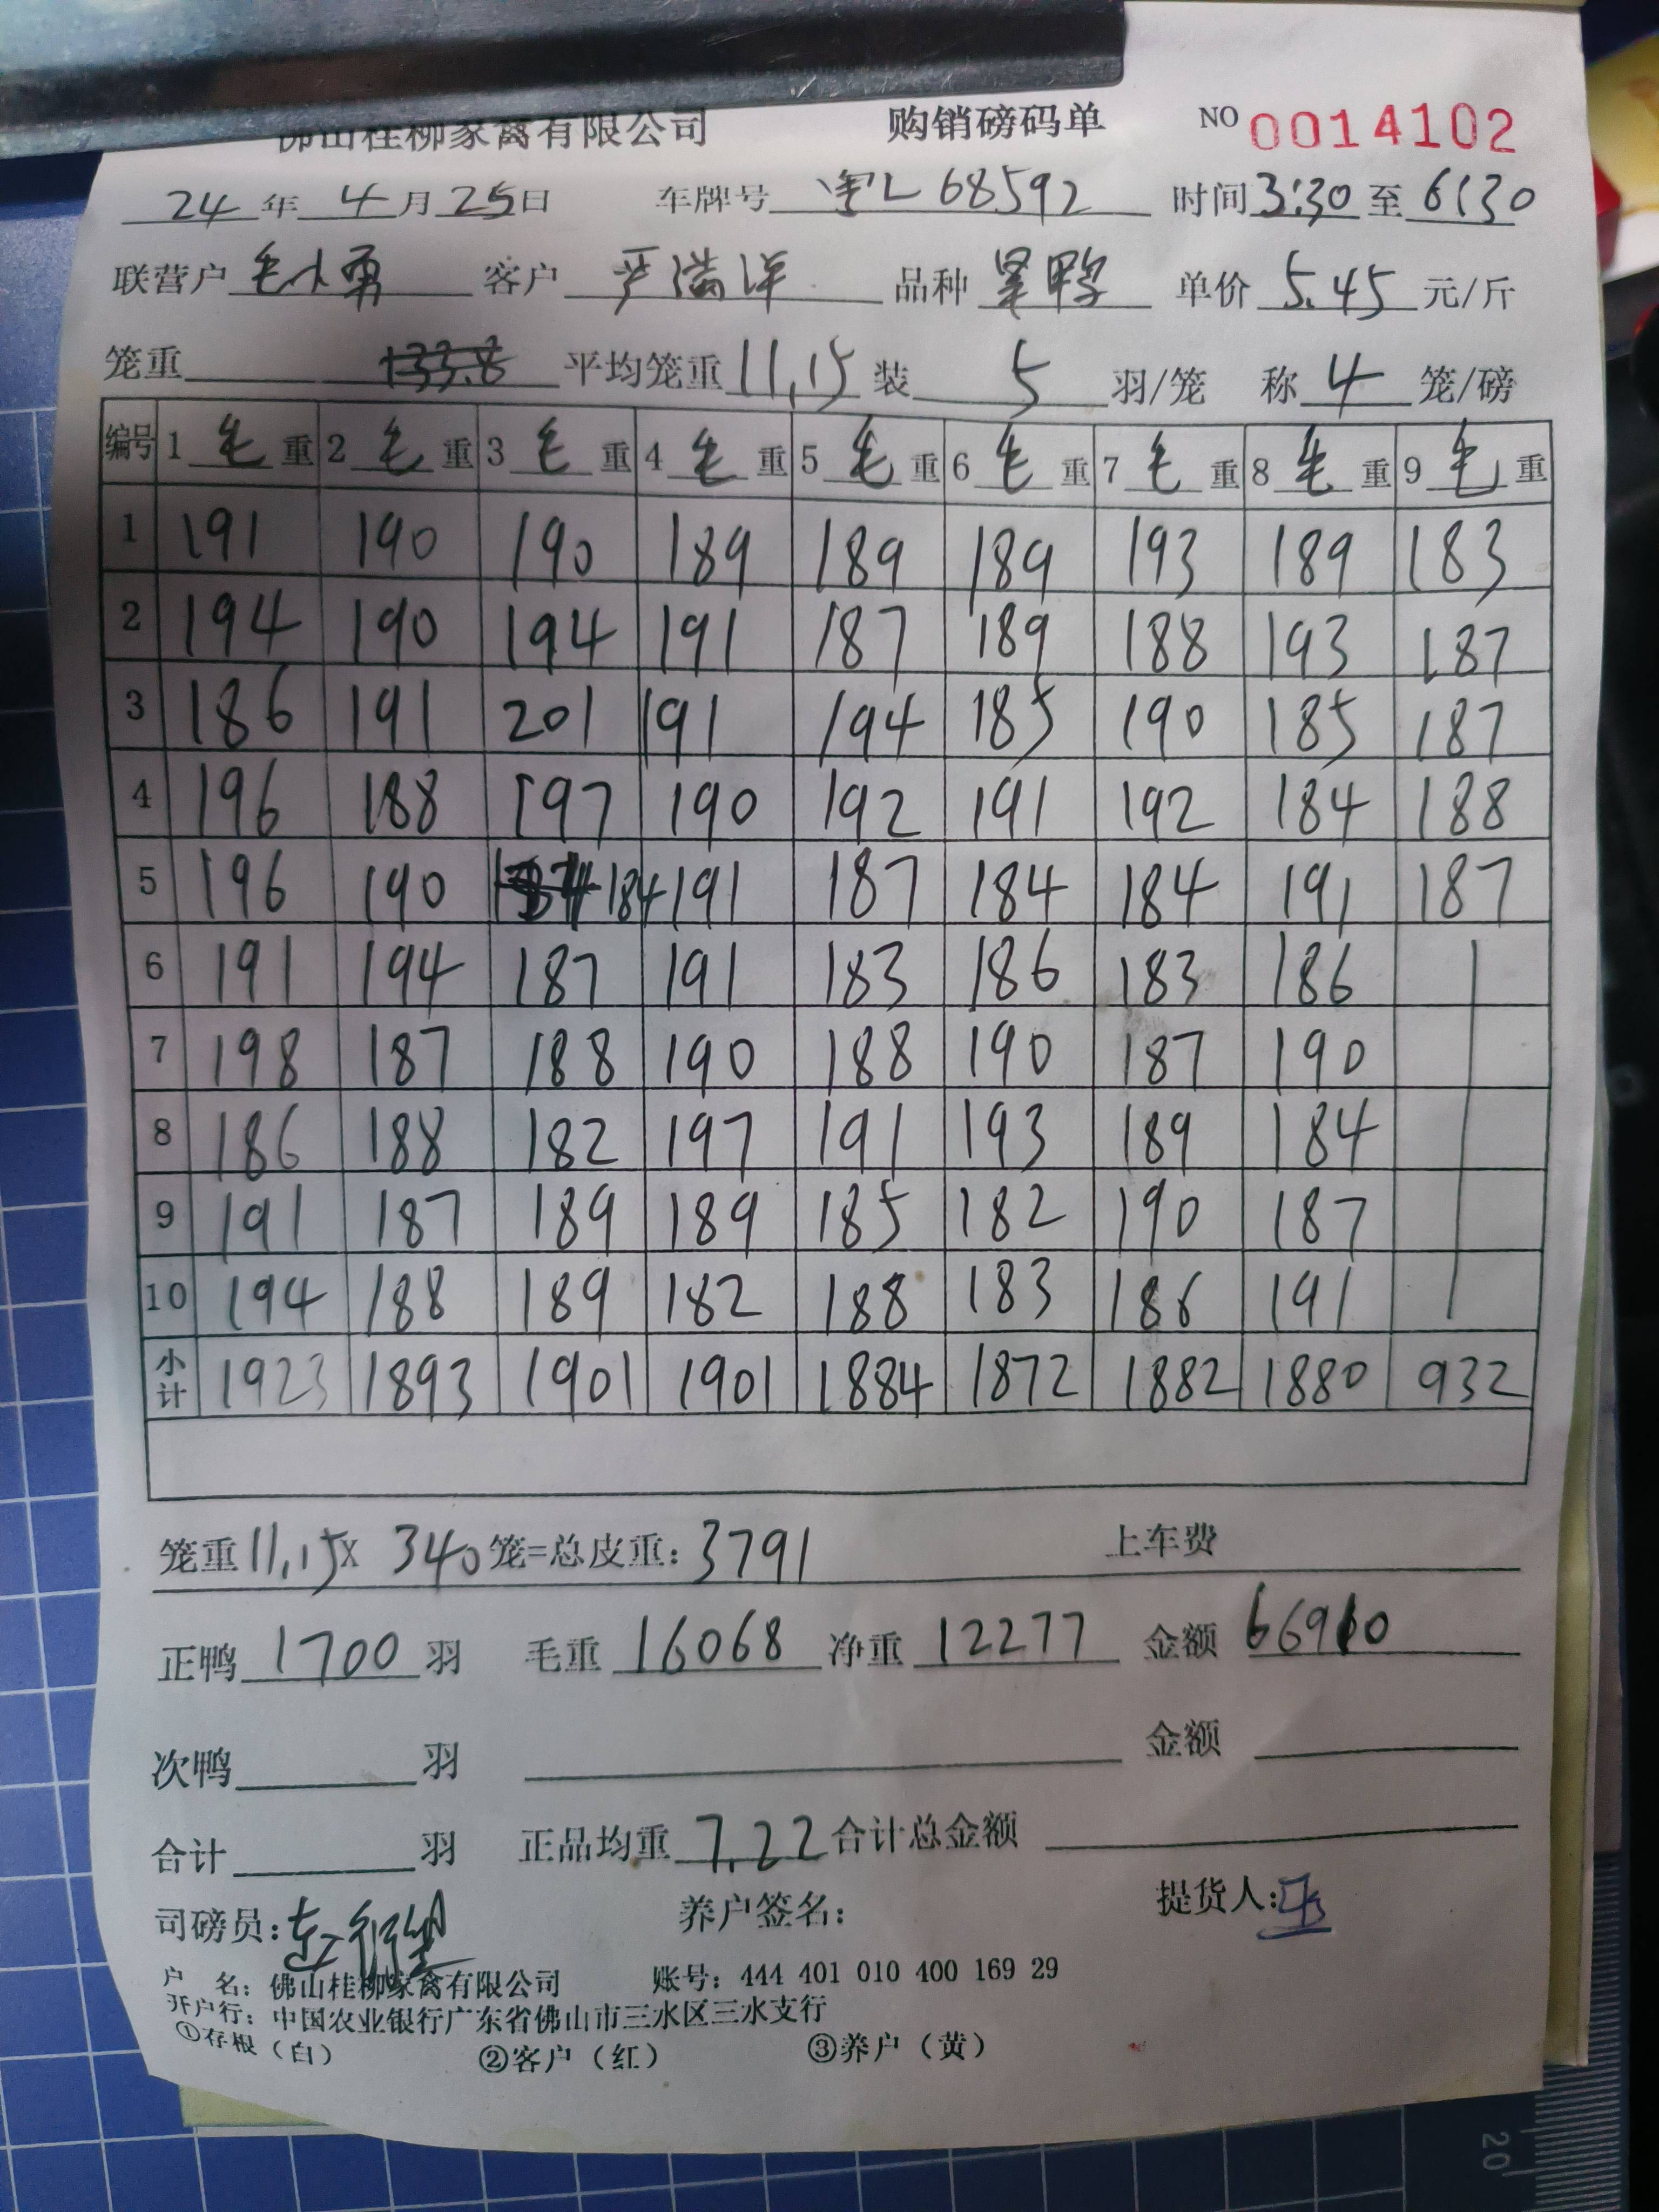 佛山桂柳家禽有限公司 购销磅码单 NO 0014102
24年4月25日 车牌号 L 68592 时间3:30至6:30
联营户 毛小勇 客户 严满洋 品种 鸭 单价 5.45 元/斤
笼重 133.8 平均笼重 11.15 装 5 羽/笼 称 4 笼/磅
编号 1毛重 2毛重 3毛重 4毛重 5毛重 6毛重 7毛重 8毛重 9毛重
1 191 190 190 189 189 189 193 189 183
2 194 190 194 191 187 189 188 193 187
3 186 191 201 191 194 185 190 185 187
4 196 188 197 190 192 191 192 184 188
5 196 190 184 191 187 184 184 191 187
6 191 194 187 191 183 186 183 186
7 198 187 188 190 188 190 187 190
8 186 188 182 197 191 193 189 184
9 191 187 189 189 185 182 190 187
10 194 188 189 182 188 183 186 191
小计 1923 1893 1901 1901 1884 1872 1882 1880 932
笼重 11.15 x 340 笼=总皮重: 3791 上车费
正鸭 1700 羽 毛重 16068 净重 12277 金额 66910
次鸭 羽 金额
合计 羽 正品均重 7.22 合计总金额
司磅员: 养户签名: 提货人:
户 名: 佛山桂柳家禽有限公司 账号: 444 401 010 400 169 29
开户行: 中国农业银行广东省佛山市三水区三水支行
①存根（白） ②客户（红） ③养户（黄）
20